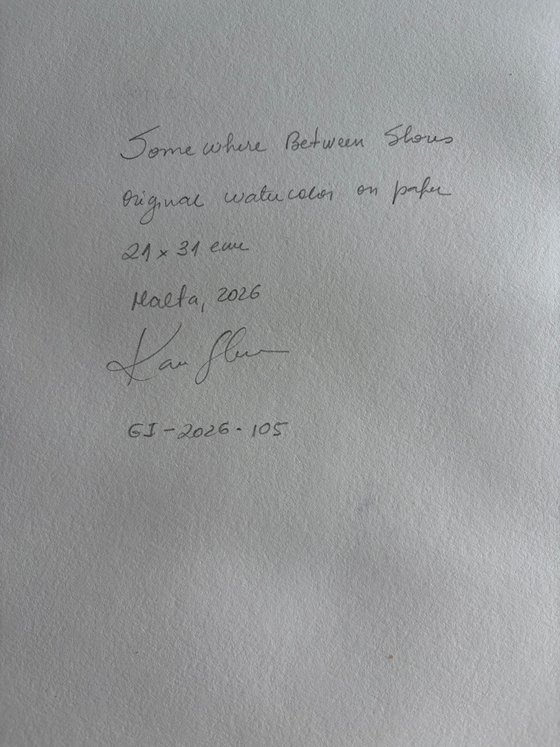 Somewhere Between Shores
Original watercolor on paper
21 x 31 cm
Malta, 2026
GI-2026-105